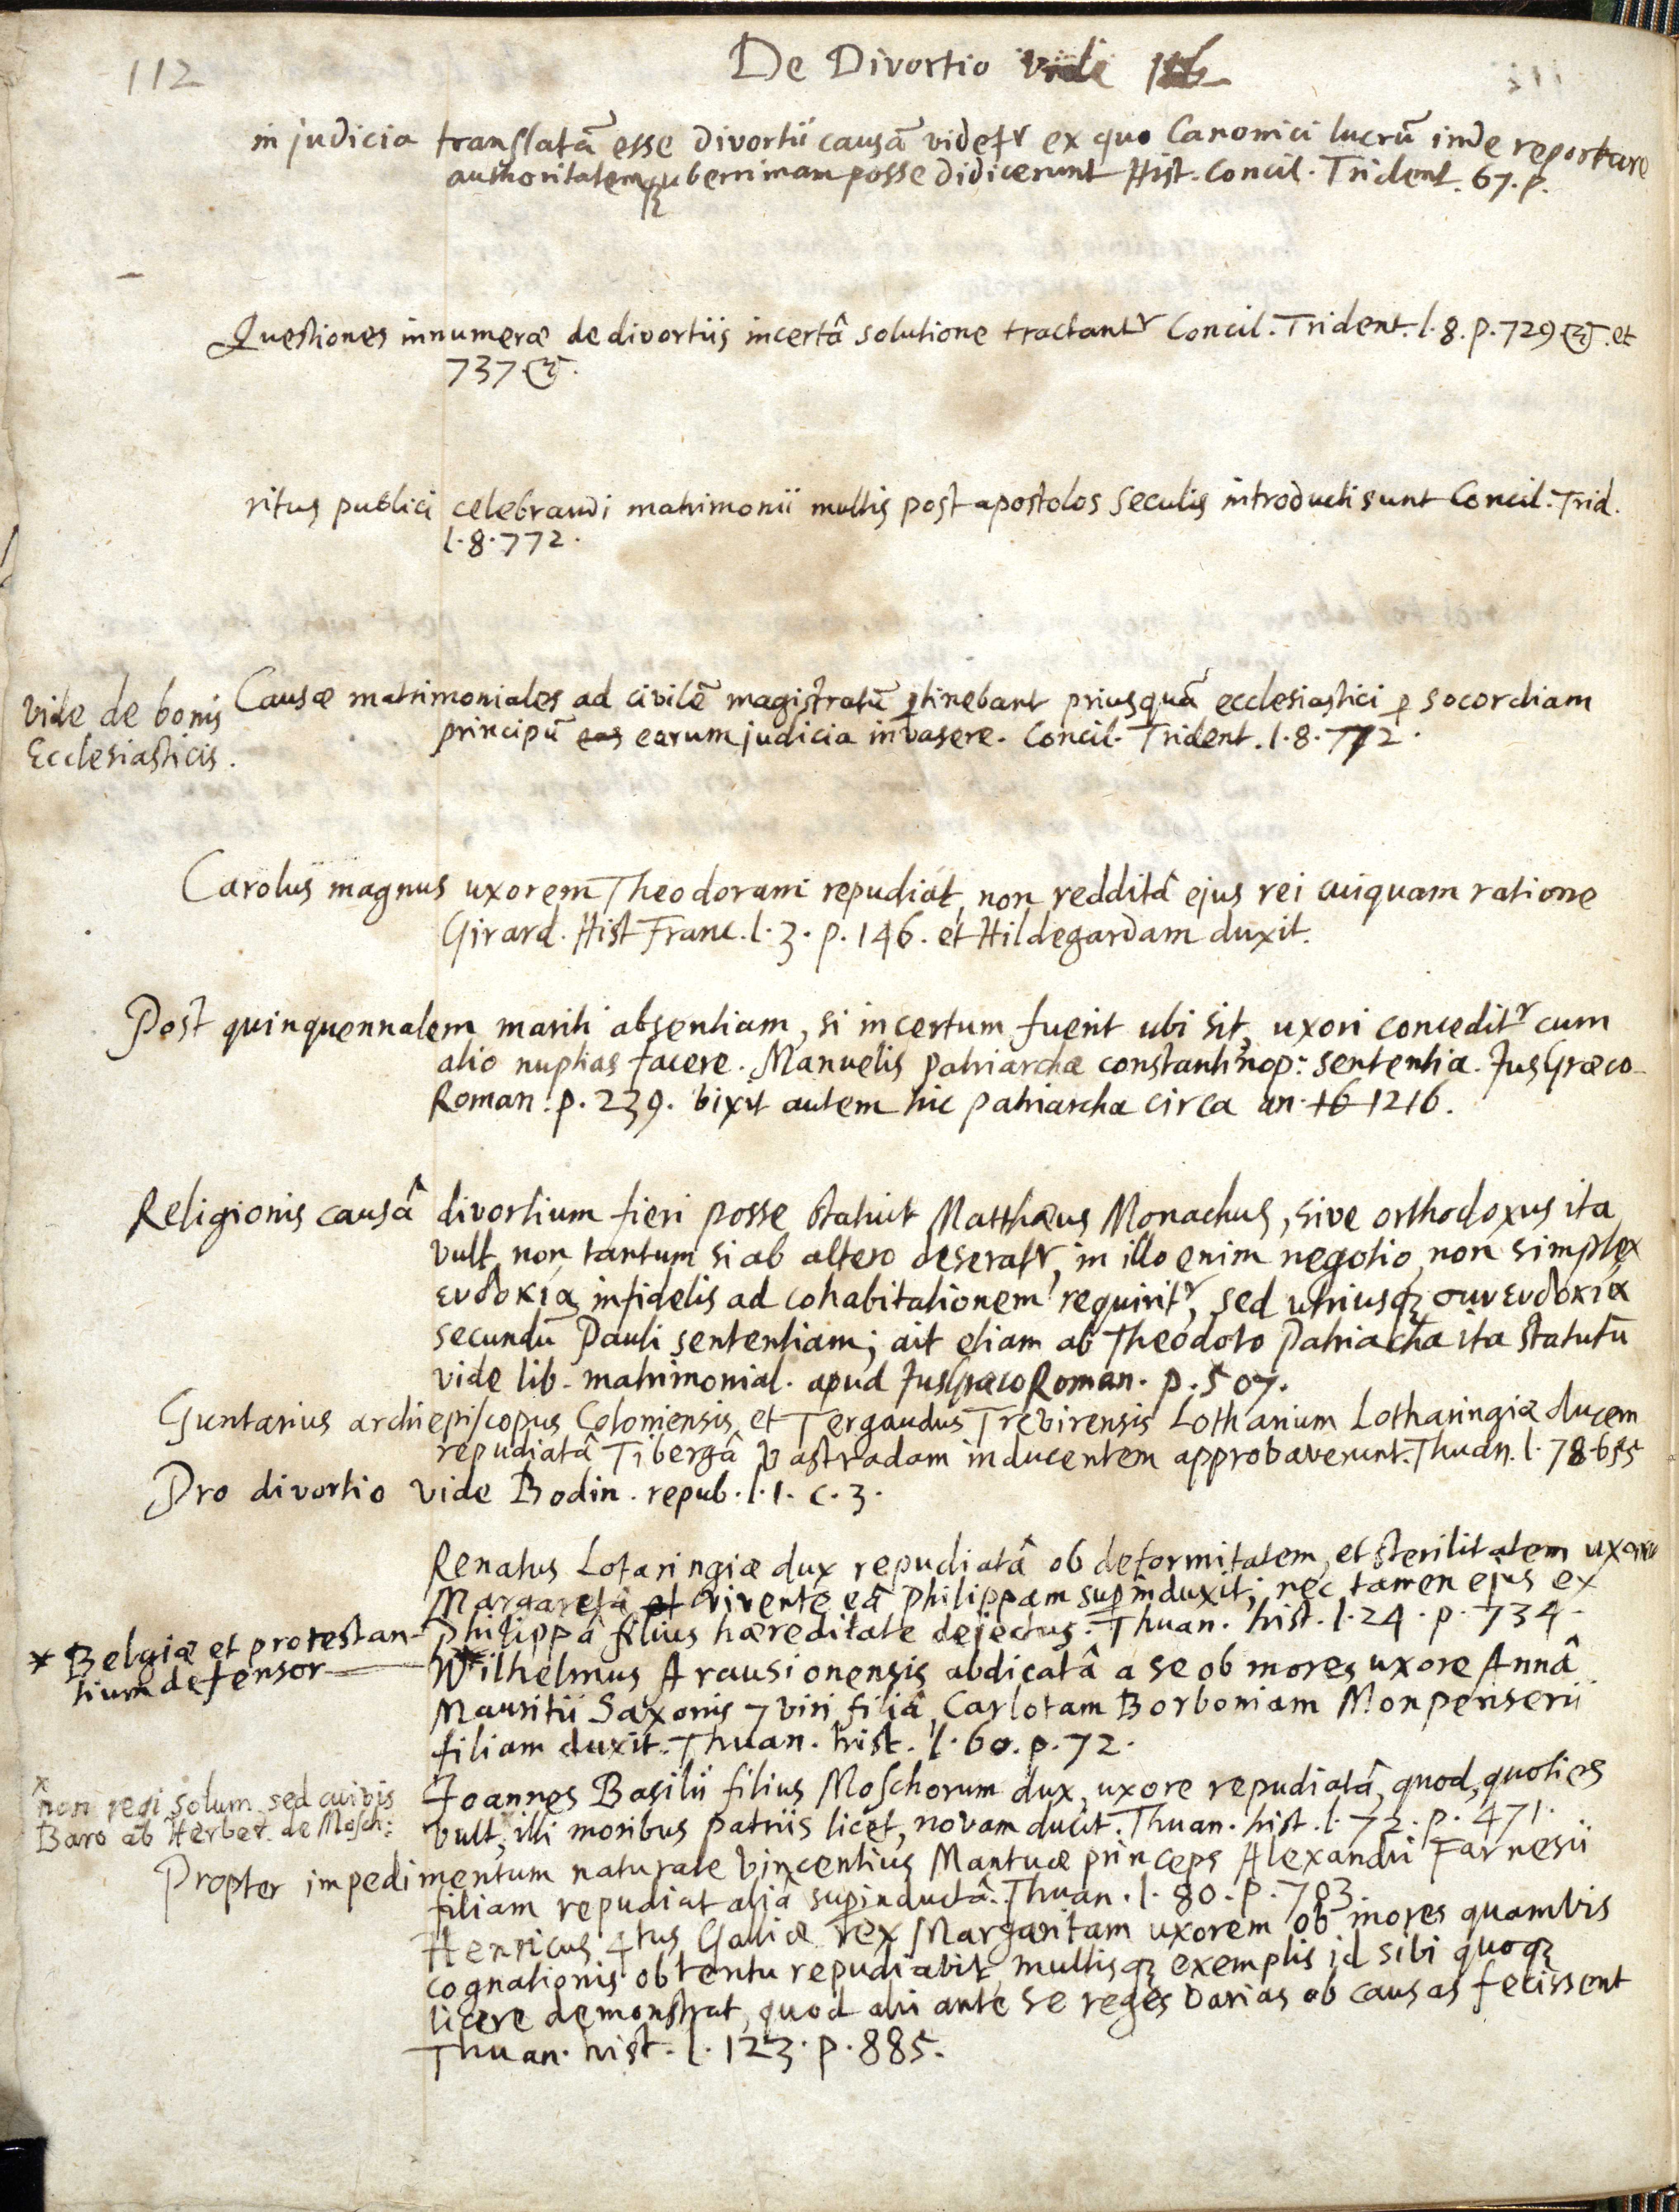 112
De Divortio vide 116
in judicia translatā esse divortii causā videtʳ ex quo Canonici lucrū inde reportare
authoritatemqȝ uberrimam posse didicerunt Hist. Concil. Trident. 67. p.
Questiones innumeræ de divortiis incertâ solutione tractantʳ Concil. Trident. l. 8. p. 729 &c. et
737 &c.
ritus publici celebrandi matrimonii multis post apostolos seculis introducti sunt Concil. Trid.
l. 8. 772.
vide de bonis
Ecclesiasticis.
Causæ matrimoniales ad civilē magistratū ꝑtinebant priusquā ecclesiastici ꝑ socordiam
principū eas earum judicia invasere. Concil. Trident. l. 8. 772.
Carolus magnus uxorem Theodoram repudiat, non redditâ ejus rei cuiquam ratione
Girard. Hist Franc. l. 3. p. 146. et Hildegardam duxit.
Post quinquennalem mariti absentiam, si incertum fuerit ubi sit, uxori conceditʳ cum
alio nuptias facere. Manuelis patriarchæ constantinop: sententia. Jus Græco-
Roman. p. 239. vixit autem hic patriarcha circa an. 16 1216.
Religionis causâ divortium fieri posse statuit Matthæus Monachus, sive orthodoxus ita
vult, non tantum si ab altero deseratʳ, in illo enim negotio non simplex
ευδοκια infidelis ad cohabitationem requiritʳ, sed utriusqȝ συνευδοκία
secundū Pauli sententiam; ait etiam ab Theodoto Patriacha ita statutū
vide lib. matrimonial. apud Jus Græco Roman. p. 507.
Guntarius archiepiscopus Coloniensis et Tergaudus Trevirensis Lotharium Lotharingiæ ducem
repudiatâ Tibergâ Vastradam inducentem approbaverunt. Thuan. l. 78 655
Pro divortio vide Bodin. repub. l. 1. c. 3.
Renatus Lotaringiæ dux repudiatâ ob deformitatem, et sterilitatem uxore
Margaretâ et vivente eâ Philippam suꝑinduxit; nec tamen ejus ex
Philippâ filius hæreditate dejectus. Thuan. hist. l. 24. p. 734.
* Belgiæ et protestan-
tium defensor
W*ilhelmus Arausionensis abdicatâ a se ob mores uxore Annâ
Mauritii Saxonis 7 viri filiâ, Carlotam Borboniam Monpenserii
filiam duxit. Thuan. hist. l. 60. p. 72.
x non regi solum sed cuivis
Baro ab Herber. de Mosch:
Joannes Basilii filius Moschorum dux, uxore repudiatâ, quod, quoties
vult, illi moribus patriis licet, novam ducit. Thuan. hist. l. 72. p. 471.
Propter impedimentum naturale Vincentius Mantuæ princeps Alexandri Farnesii
filiam repudiat aliâ suꝑinductâ. Thuan. l. 80. p. 703.
Henricus 4tus Galliæ rex Margaritam uxorem ob mores quamvis
cognationis obtentu repudiavit, multisqȝ exemplis id sibi quoqȝ
licere demonstrat, quod alii ante se reges varias ob causas fecissent
Thuan. hist. l. 123. p. 885.